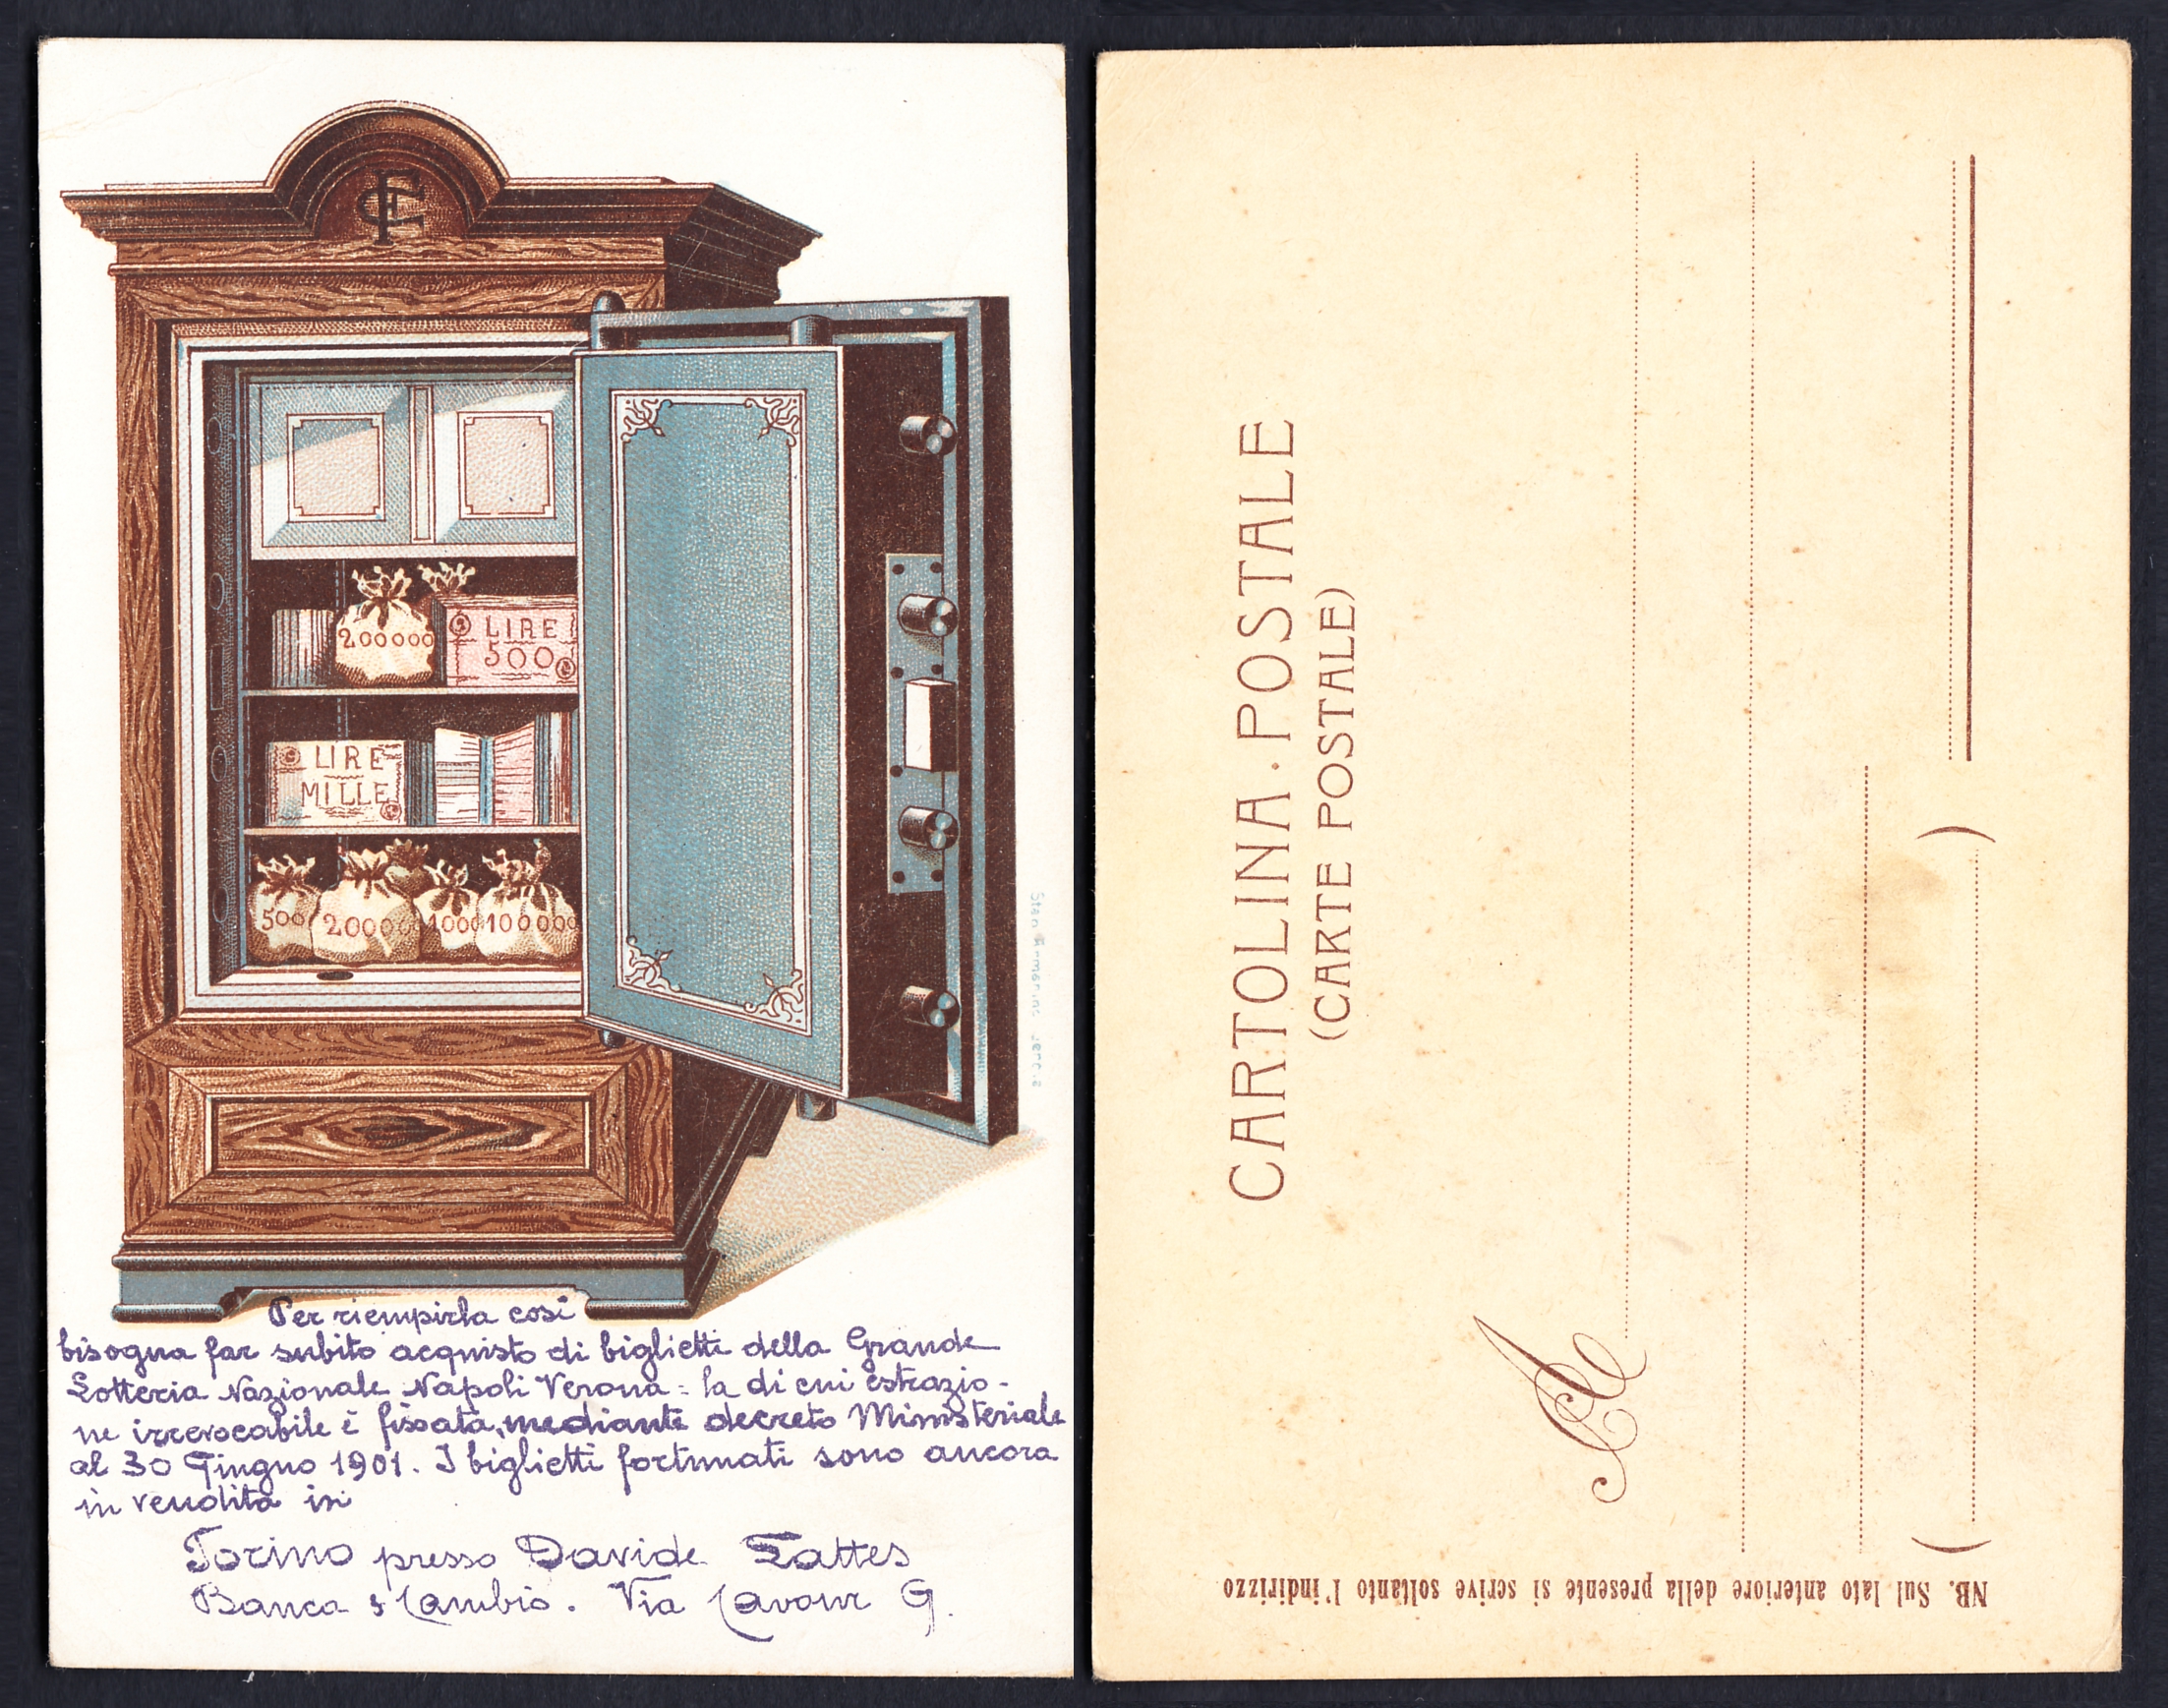 200000
LIRE
500
LIRE
MILLE
500
20000
1000
100000
Per riempirla così
bisogna far subito acquisto di biglietti della Grande
Lotteria Nazionale Napoli Verona = la di cui estrazio-
ne irrevocabile è fissata, mediante decreto Ministeriale
al 30 Giugno 1901. I biglietti fortunati sono ancora
in vendita in
Torino presso Davide Lattes
Banca & Cambio. Via Cavour 9.
CARTOLINA POSTALE
(CARTE POSTALE)
A
NB. Sul lato anteriore della presente si scrive soltanto l'indirizzo